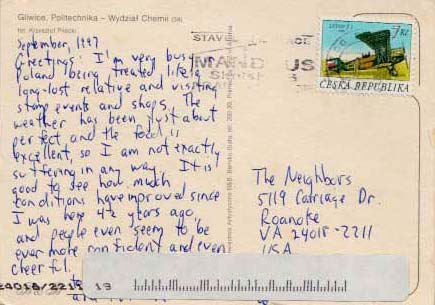 Gliwice, Politechnika – Wydział Chemii
fot. Krzysztof Pilecki
September, 1997
Greetings! I'm very busy
Poland being treated like a
long-lost relative and visiting
stamp events and shops. The
weather has been just about
perfect and the food is
excellent, so I am not exactly
suffering in any way. It is
good to see how much
conditions have improved since
I was here 4½ years ago,
and people even seem to be
ever more confident and even
cheerful.
7 Kč
ČESKÁ REPUBLIKA
The Neighbors
5119 Carriage Dr.
Roanoke
VA 24018-2211
USA
24018/2219 19